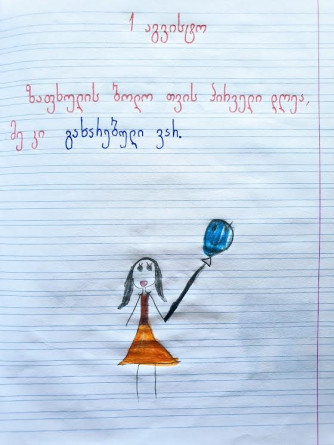 1 აგვისტო
ზაფხულის ბოლო თვის პირველი დღეა,
მე კი გახარებული ვარ.